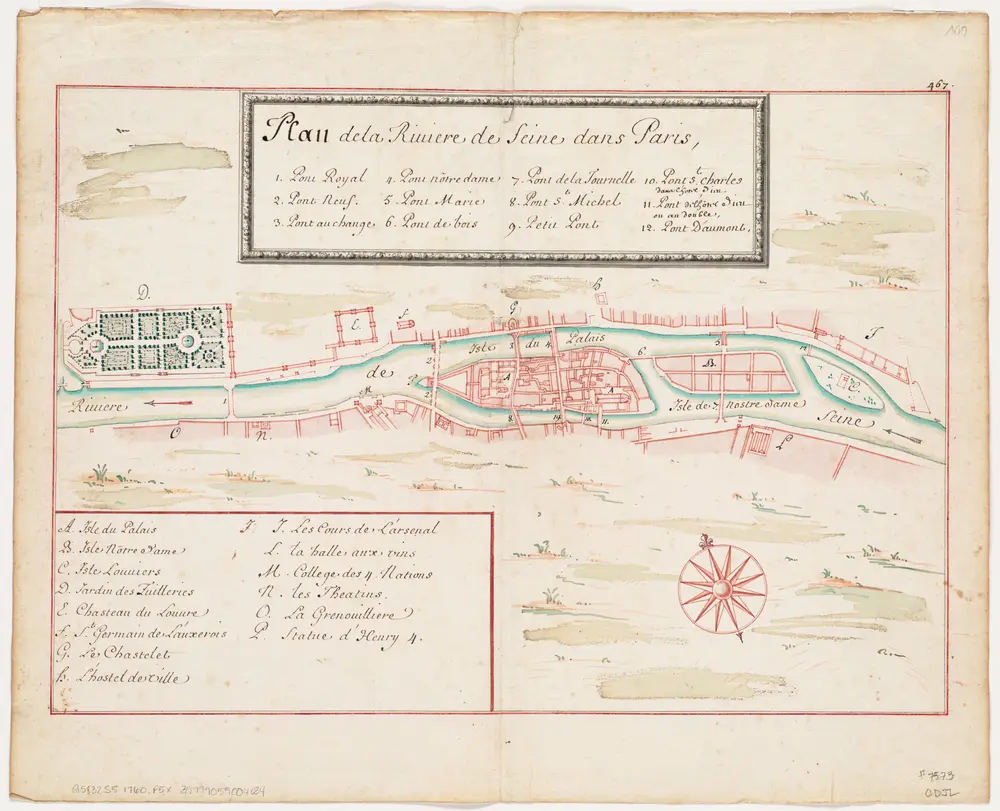 467.
Plan de la Riviere de Seine dans Paris,
1. Pont Royal
2. Pont Neuf.
3. Pont au change
4. Pont nôtre dame
5. Pont Marie
6. Pont de bois
7. Pont de la Tournelle
8. Pont St. Michel
9. Petit Pont
10. Pont St. Charles
11. Pont
ou au double,
12. Pont D'aumont,
D.
E.
f.
G
h
Isle du Palais
3
4
5
6
T
de
2
2
P
A
A
B
C
M
Riviere
1
8
9
11.
Isle de Nostre Dame
7
Seine
O
N.
L
A. Isle du Palais
B. Isle Nôtre Dame
C. Isle Louviers
D. Jardin des Tuilleries
E. Chasteau du Louvre
f. St. Germain de Lauxerois
G. Le Chastelet
h. L'hostel de ville
I. Les Cours de L'arsenal
L. la halle aux vins
M. College des 4. Nations
N. les Theatins.
O. La Grenouilliere
P. Statue d'Henry 4.
G5832.S5 1760 .P5x
# 7573